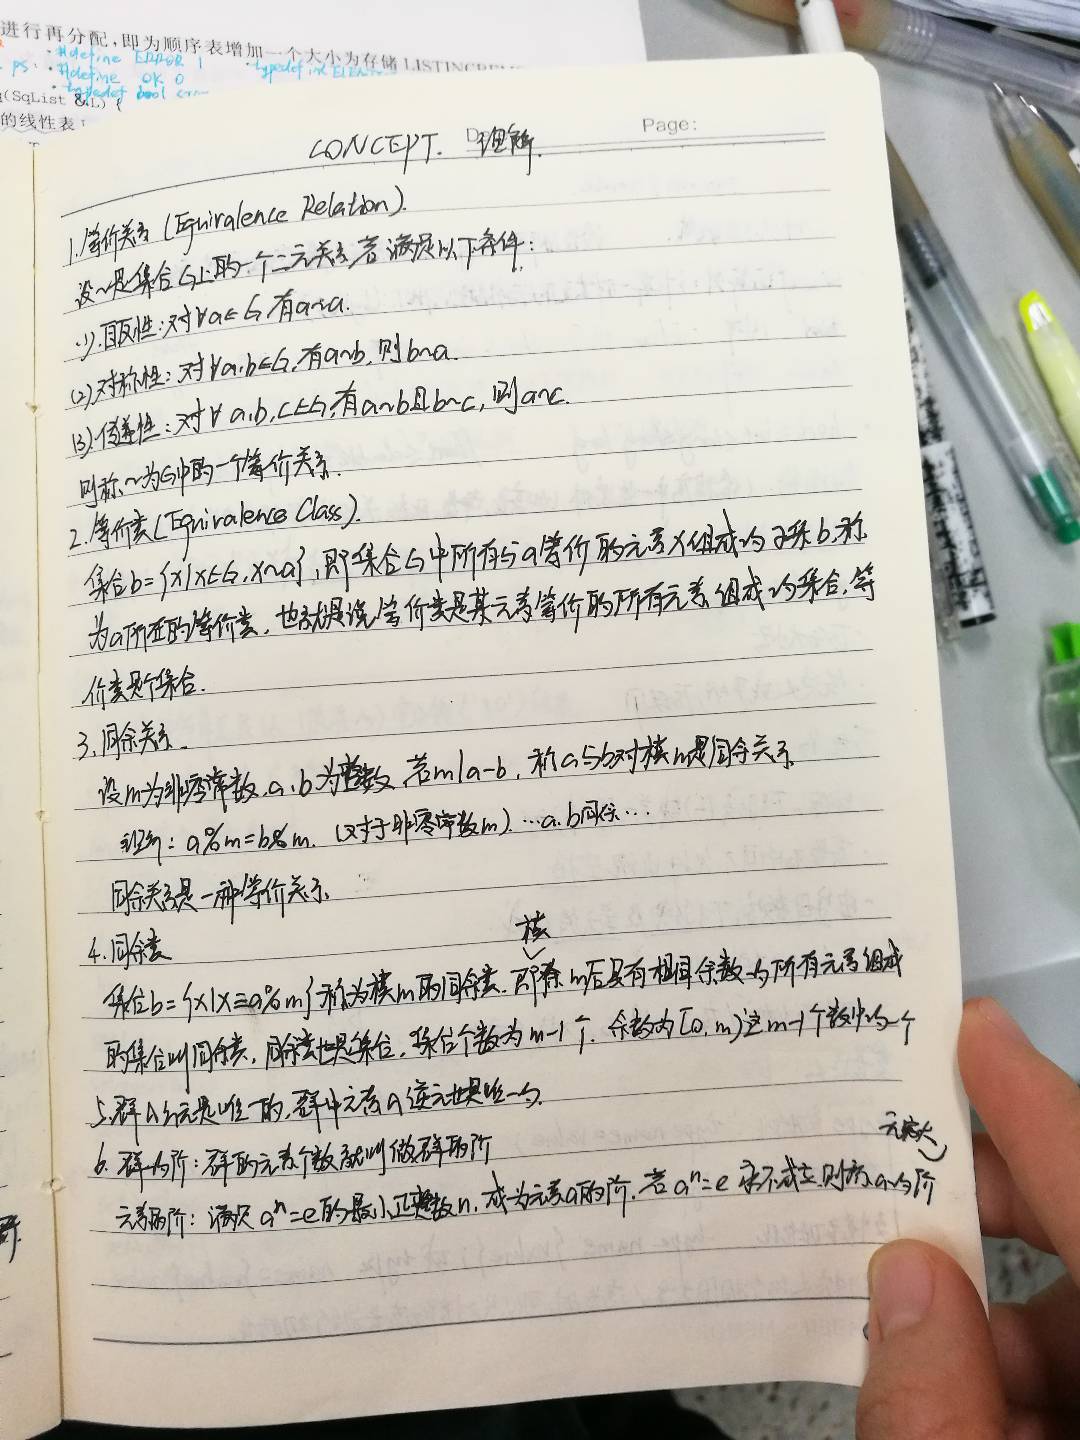 进行再分配,即为顺序表增加一个大小为存储LISTINCREM
#define ERROR 1
ps.
#define OK 0
typedef bool
(SqList &L) {
的线性表;
Page:
CONCEPT. 理解.
1.等价关系 (Equivalence Relation).
设~是集合G上的一个二元关系,若满足以下条件:
(1).自反性:对∀a∈G,有a~a.
(2)对称性:对∀a,b∈G,有a~b,则b~a.
(3).传递性:对∀a,b,c∈G,有a~b且b~c,则a~c.
则称~为G中的一个等价关系.
2.等价类(Equivalence Class).
集合b={x|x∈G,x~a},即集合G中所有与a等价的元素x组成的子集b,称
为a所在的等价类,也就是说等价类是某元素等价的所有元素组成的集合,等
价类是个集合.
3.同余关系.
设m为非零常数,a,b为整数,若m|a-b,称a与b对模m是同余关系
a%m=b%m.(对于非零常数m)…a,b同余…
同余关系是一种等价关系
4.同余类
模
集合b={x|x≡a%m}称为模m的同余类.即除m后具有相同余数的所有元素组成
的集合叫同余类,同余类也是集合,集合个数为m-1个.余数为[0,m)这m-1个数中的一个
5.群G幺元是唯一的,群中元素a逆元也是唯一的.
6.群的阶:群的元素个数就叫做群的阶
无穷大
元素的阶:满足aⁿ=e的最小正整数n,成为元素a的阶,若aⁿ=e永不成立,则称a的阶